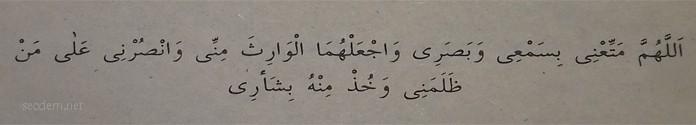 اَللَّهُمَّ مَتِّعْنِى بِسَمْعِى وَبَصَرِى وَاجْعَلْهُمَا الْوَارِثَ مِنِّى وَانْصُرْنِى عَلٰى مَنْ
ظَلَمَنِى وَخُذْ مِنْهُ بِثَأرِى
seodem.net